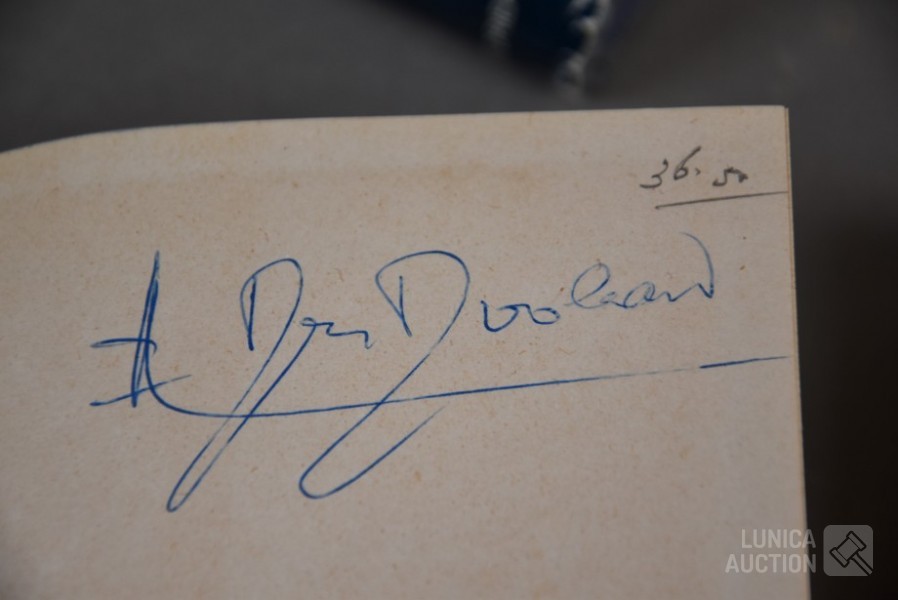 36.50
A Den Doolaard
LUNICA
AUCTION